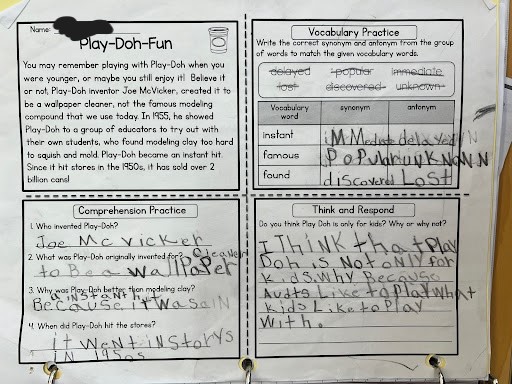 Name:
Play-Doh-Fun
You may remember playing with Play-Doh when
you were younger, or maybe you still enjoy it! Believe it
or not, Play-Doh inventor Joe McVicker, created it to
be a wallpaper cleaner, not the famous modeling
compound that we use today. In 1955, he showed
Play-Doh to a group of educators to try out with
their own students, who found modeling clay too hard
to squish and mold. Play-Doh became an instant hit.
Since it hit stores in the 1950s, it has sold over 2
billion cans!
Vocabulary Practice
Write the correct synonym and antonym from the group
of words to match the given vocabulary words.
delayed popular immediate
lost discovered unknown
Vocabulary word synonym antonym
instant iMMediate delayed
famous PoPular unKNoWN
found discovered Lost
Comprehension Practice
1. Who invented Play-Doh?
Joe Mcvicker
2. What was Play-Doh originally invented for?
to Be a wallPaPer cleaner
3. Why was Play-Doh better than modeling clay?
Because it was a instant hit
4. When did Play-Doh hit the stores?
it went in storys
IN 1950s
Think and Respond
Do you think Play Doh is only for kids? Why or why not?
I THiNK that PlAy
Doh is Not oNly for
Kids. Why Because
Like to PlAy What
Kids Like to PlAy
With.